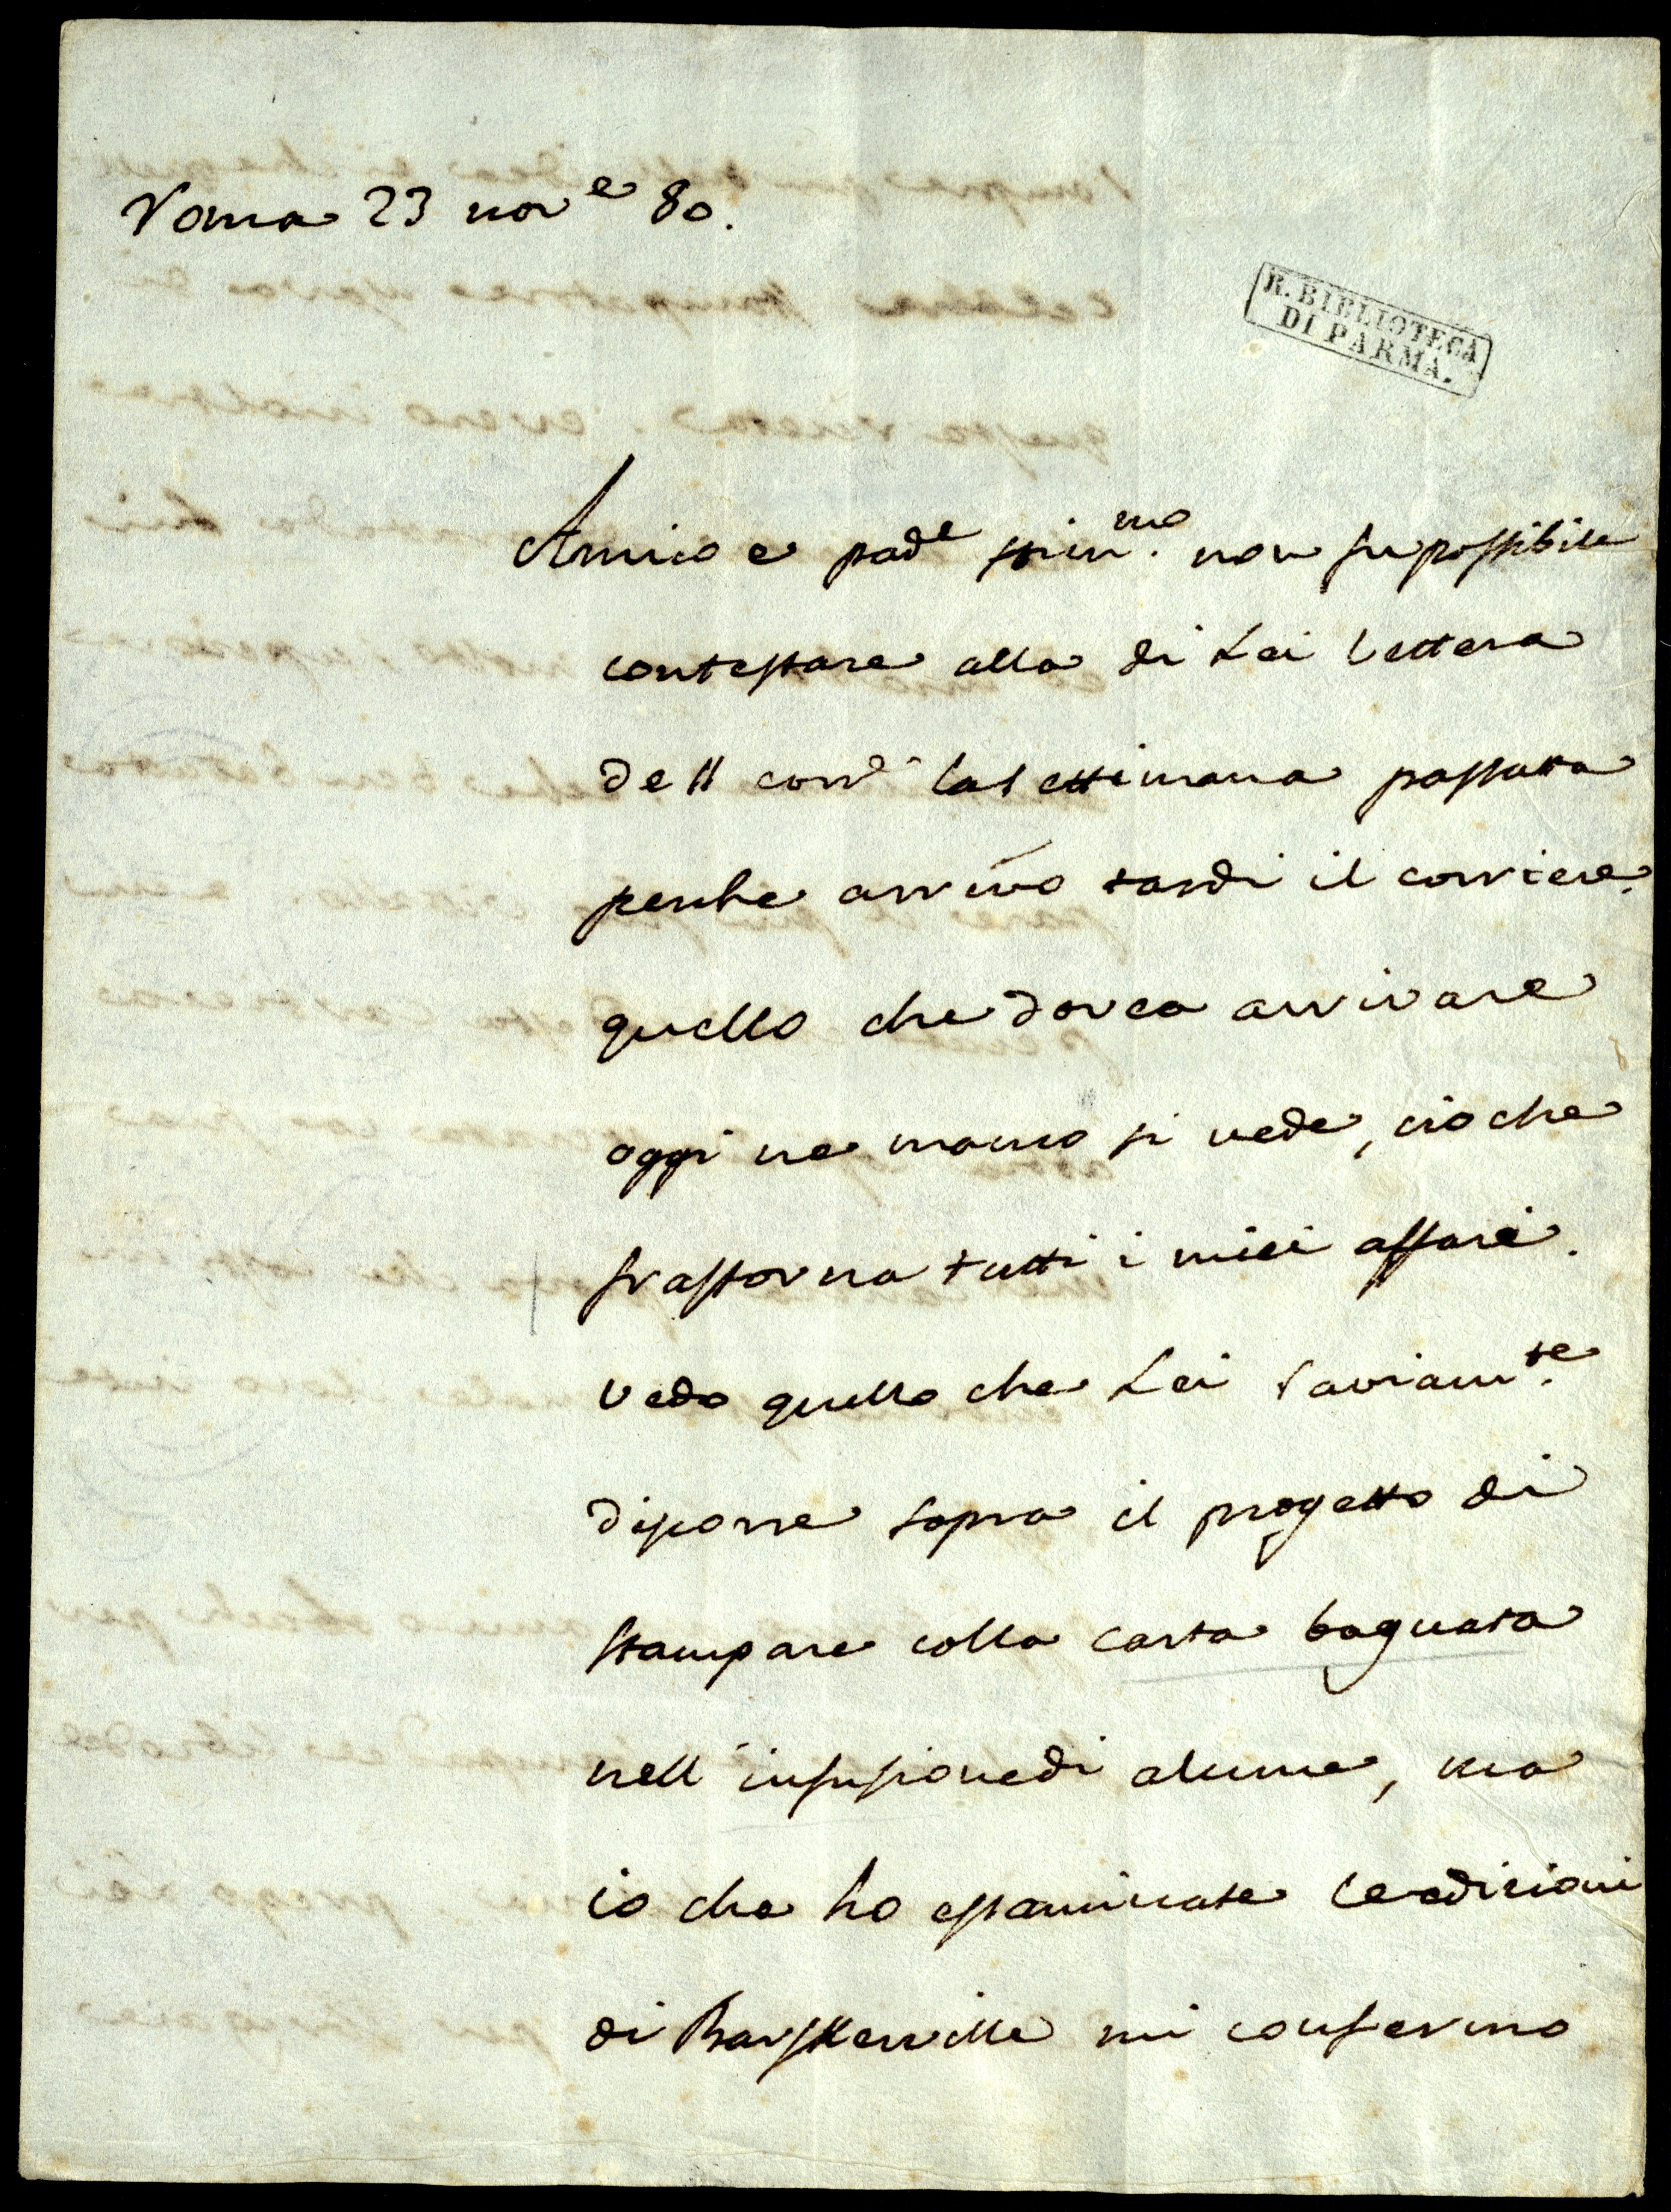 Roma 23 nov.e 80.
R. BIBLIOTECA
DI PARMA.
Amico e pad.e stim.mo non fu possibile
contestare alla di Lei lettera
dell corr.e la settimana passata
perche arrivò tardi il corriere.
quello che dovea arrivare
oggi ne manco si vede, cio che
frastorna tutti i miei affari.
Vedo quello che Lei saviam.te
discorre sopra il progetto di
stampare colla carta bagnata
nell'infusione di alume, ma
io che ho essaminate le edizioni
di Barskerville mi confermo